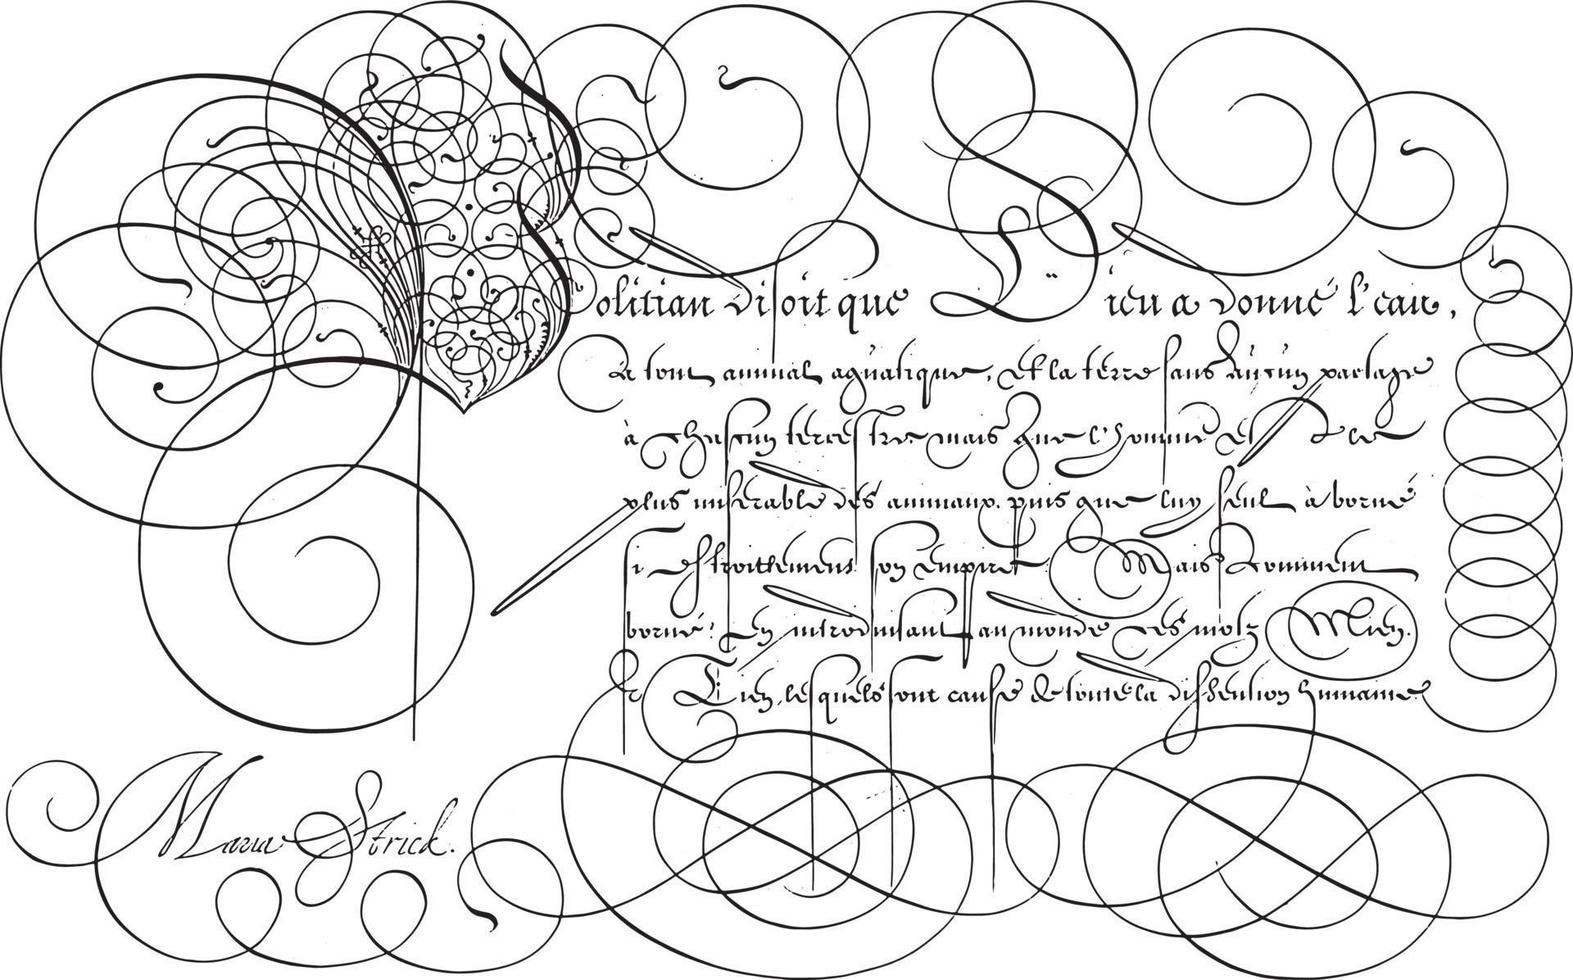 Politian disoit que Dieu a donné l'eau,
à tout animal aquatique, et la terre sans aucun partage
à chascun terrestre mais que l'homme est le
plus miserable des animaux, puis que luy seul à borné
si estroittement son empire Mais Comment
borné? En introduisant au monde ces motz Mien.
et Tien, lesquels sont cause de toute la dissention humaine
Maria Strick.